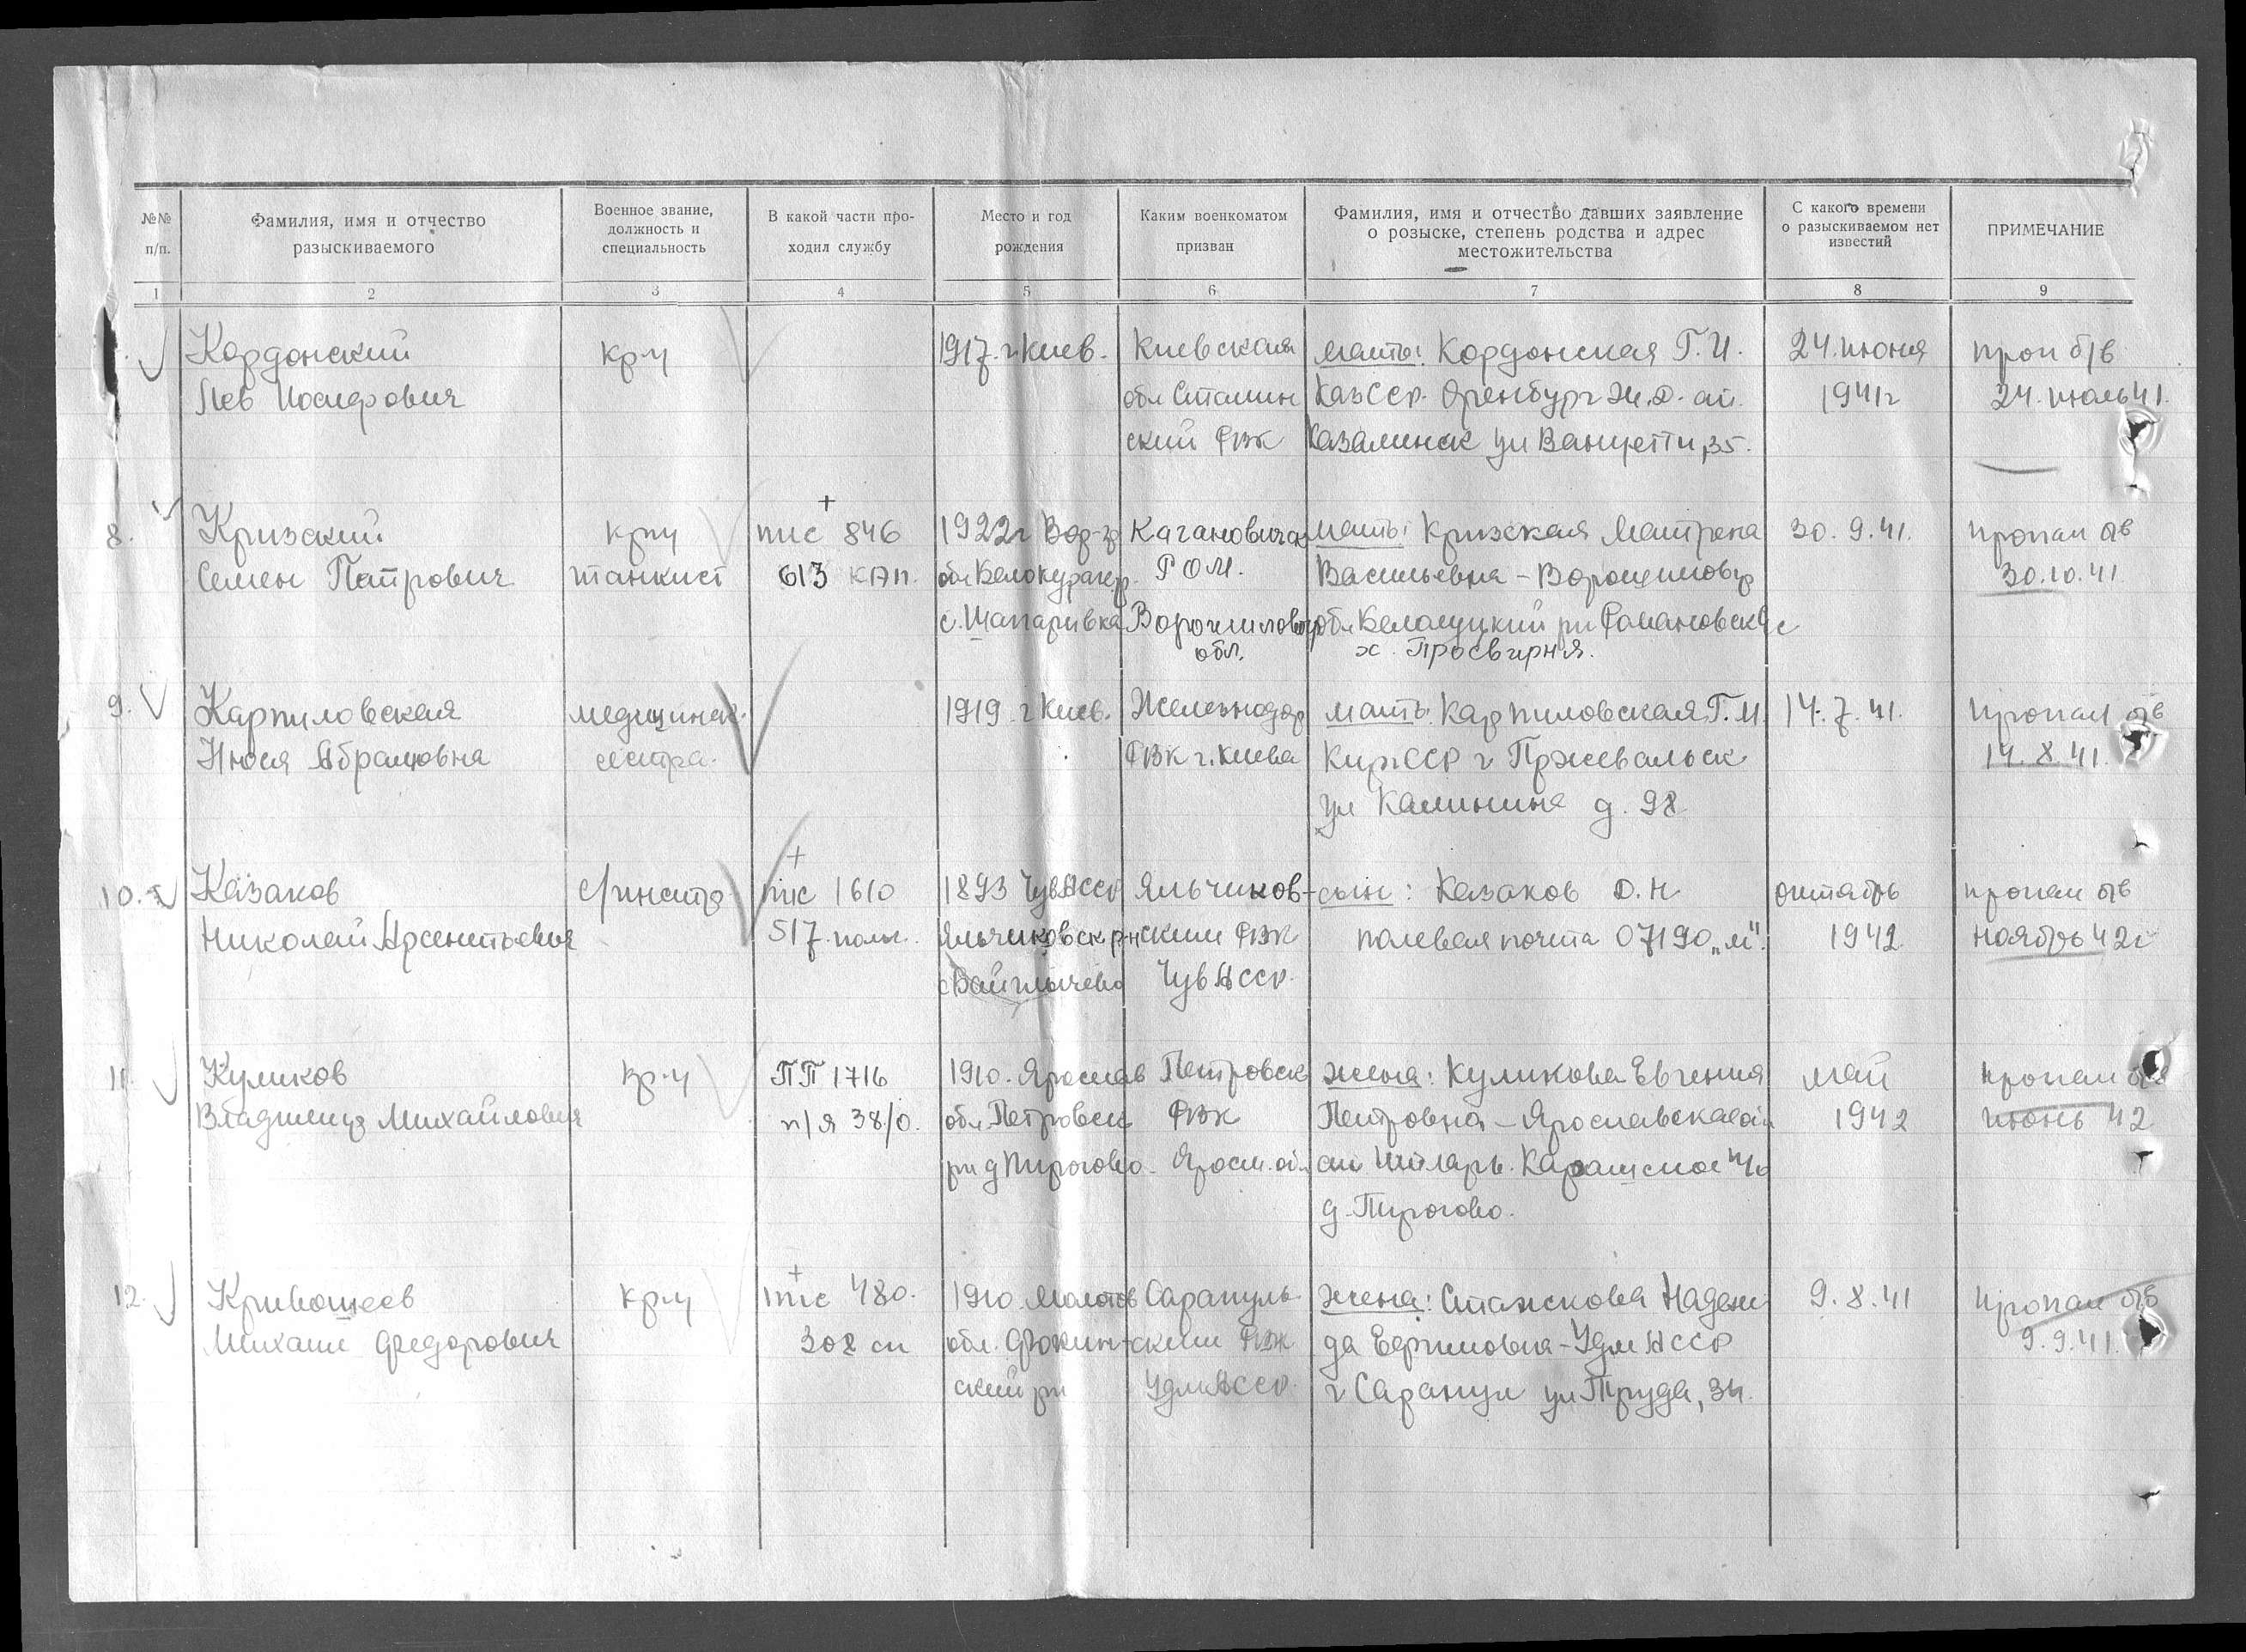 №№ п/п.
Фамилия, имя и отчество разыскиваемого
Военное звание, должность и специальность
В какой части проходил службу
Место и год рождения
Каким военкоматом призван
Фамилия, имя и отчество давших заявление о розыске, степень родства и адрес местожительства
С какого времени о разыскиваемом нет известий
ПРИМЕЧАНИЕ
1 2 3 4 5 6 7 8 9
Кордонский кр-ц 1917. г. Киев. Киевская мать: Кордонская Г. И. 24. июня проп б/в
Лев Иосифович обл Сталин КазССР. Оренбург Ж.Д. 1941г 24. июль 41.
ский РВК Казалинск ул Ванцетти, 35.
8. Кризский кр-ц ппс 846 1922г Вор-гр мать: Кризская Матрена 30. 9. 41. пропал б/в
Семен Петрович танкист 613 КАП. обл Белокурак р. РОМ. Васильевна - Ворошиловгр 30.10.41
Ворошиловгр обл.
х. Просвирня.
9. Карпиловская медицинск. 1919. г Киев. Железнодор мать: Карпиловская Г. М. 14. 7. 41. пропал б/в
Нюся Абрамовна сестра. РВК г. Киева КирССР г Пржевальск 14. 8. 41.
ул Калинина д. 98
10. Казаков ппс 1610 1893 ЧувАССР Яльчиков- сын: Казаков Д. Н октябрь пропал б/в
Николай Арсентьевич 517 полк. Яльчиковск р-н ский РВК полевая почта 07190 „м". 1942 ноябрь 42г
с Байглычево ЧувАССР.
11. Куликов кр-ц ПП 1716 1910. Ярослав Петровск жена: Куликова Евгения май пропал б/в
Владимир Михайлович п/я 38/0. обл. Петровск РВК Петровна - Ярославская обл 1942 июнь 42
рн д Пирогово. Яросл. обл
д. Пирогово.
12. Кривошеев кр-ц ппс 480. 1910. Молотов Сарапуль- жена: Надеж- 9. 8. 41 пропал б/в
Михаил Федорович 308 сп обл. Фокин- ский РВК да Ефимовна - УдмАССР 9. 9. 41.
ский рн УдмАССР. г Сарапул ул Труда, 34.